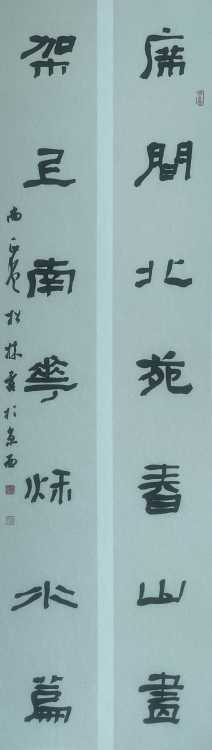 席間北苑春山畫
架上南華秋水篇
松林書於京西